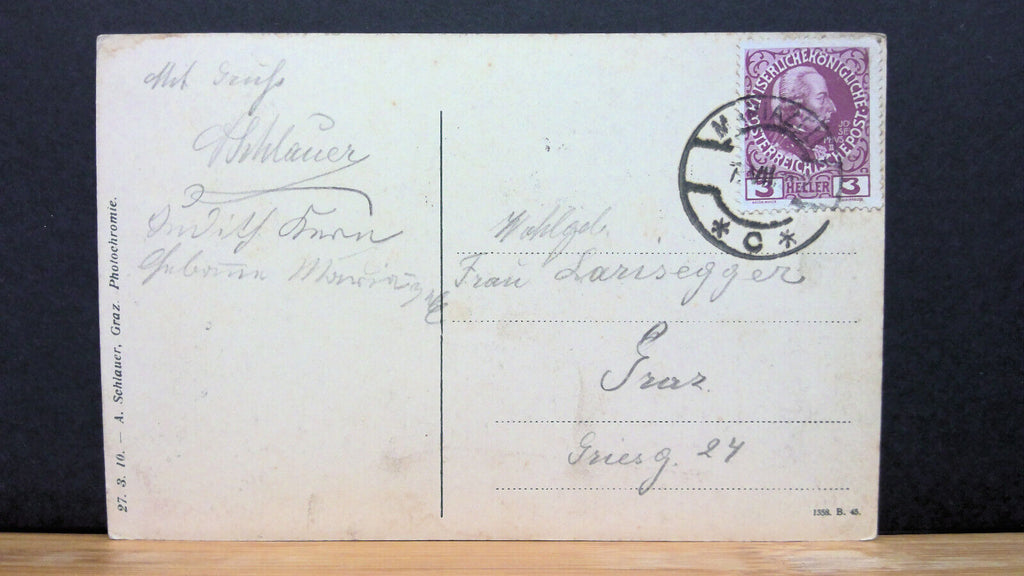 Mit Gruß
ASchlauer
Judith Kern
27. 3. 10. — A. Schlauer, Graz. Photochromie.
KAISERLICHEKÖNIGLICHE
ÖSTERREICHISCHE POST
3 HELLER 3
* C *
Wohlgeb.
Frau Larisegger
Graz
Griesg. 24
1358. B. 45.